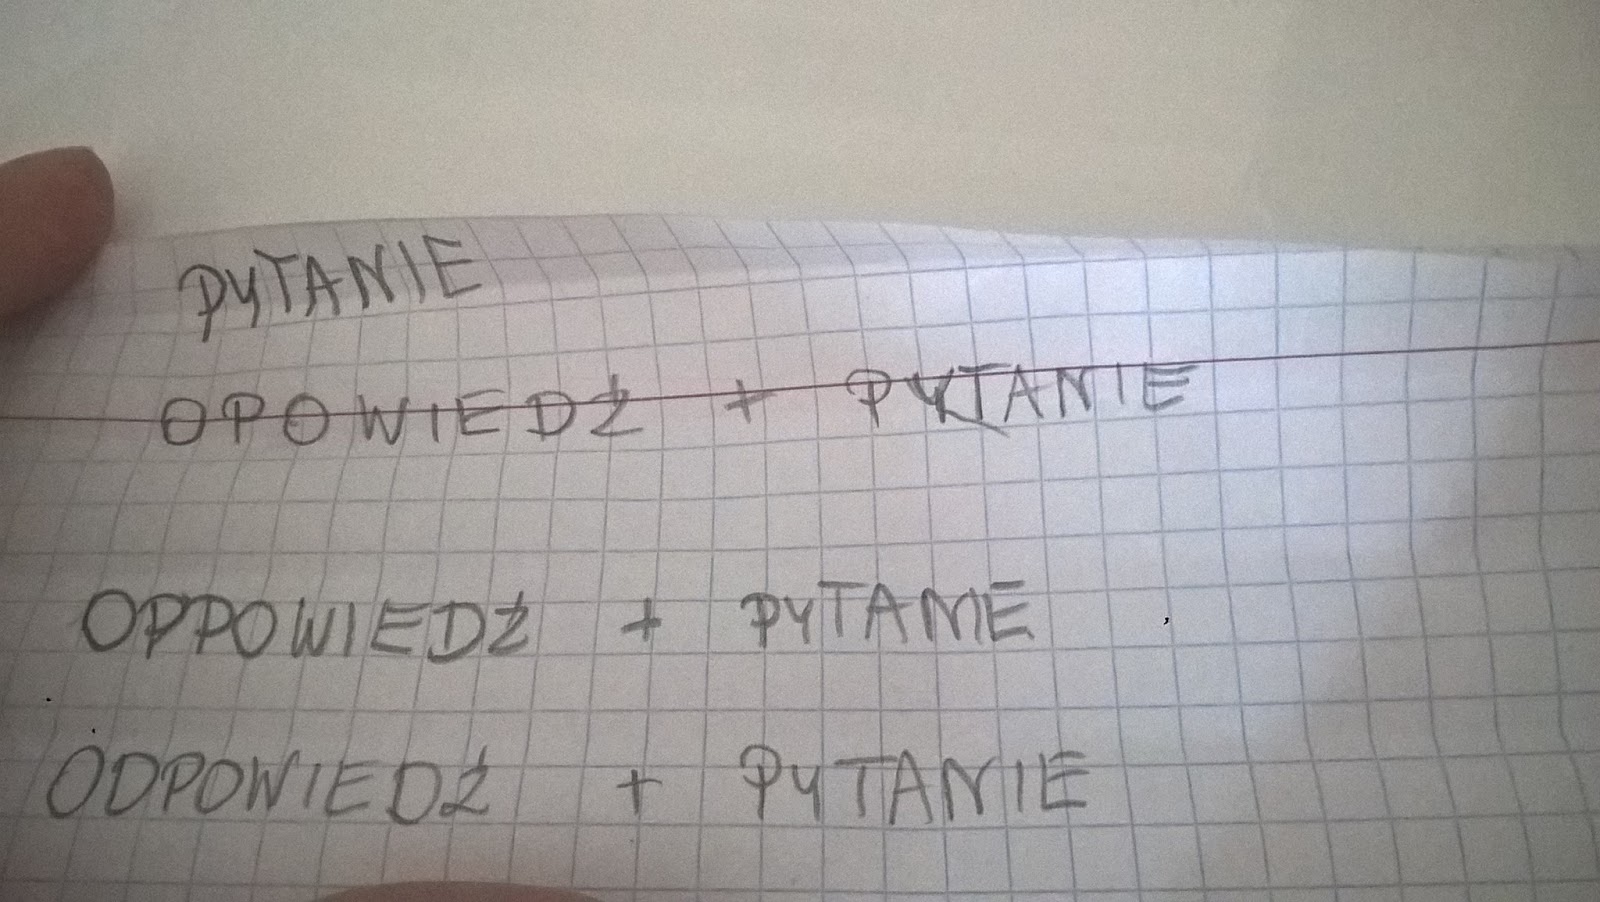 PYTANIE
OPOWIEDŹ + PYTANIE
OPPOWIEDŹ + PYTANIE
ODPOWIEDŹ + PYTANIE